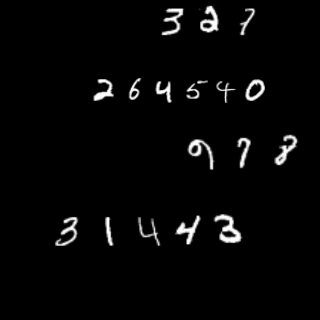 327
264540
978
31443